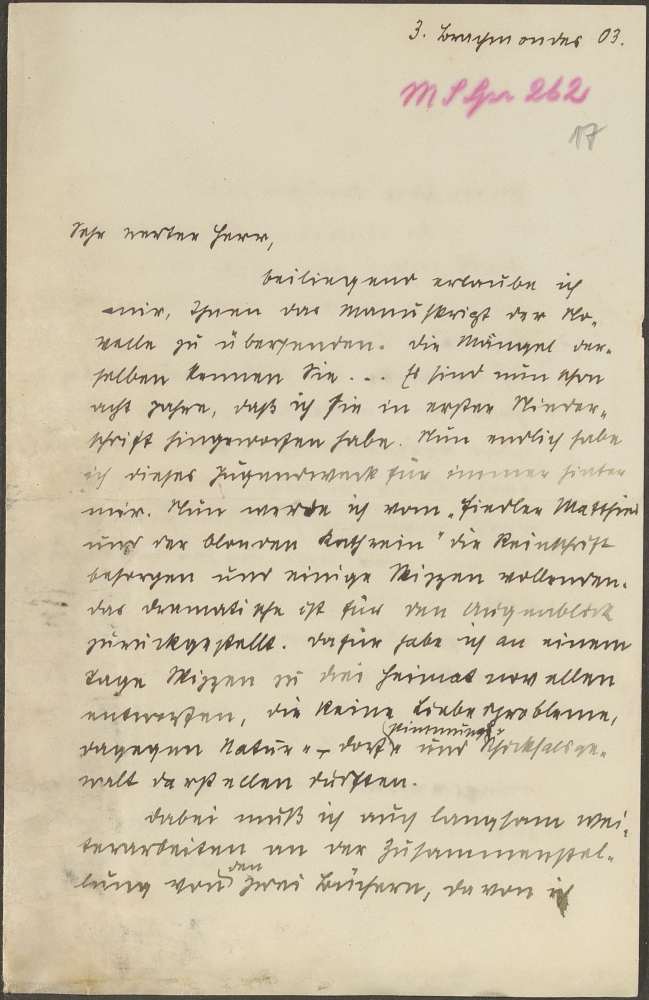 3. Brachmondes 03.
MS Ger 262
17
Sehr werter Herr,
beiliegend erlaube ich
mir, Ihnen das Manuskript der No-
velle zu übersenden. Die Mängel der-
selben kennen Sie... Es sind nun schon
acht Jahre, daß ich sie in erster Nieder-
schrift hingeworfen habe. Nun endlich habe
ich dieses Jugendwerk für immer hinter
mir. Nun werde ich vom „Fiedler Matthias
und der blonden Kathrein" die Reinschrift
besorgen und einige Skizzen vollenden.
Das dramatische ist für den Augenblick
zurückgestellt. Dafür habe ich an einem
Tage Skizzen zu drei Heimatnovellen
entworfen, die keine Liebesprobleme,
dagegen Natur-, Dorf- und Schicksalsge-
stimmungs-
walt darstellen dürften.
Dabei muß ich auch langsam wei-
terarbeiten an der Zusammenstel-
lung von den zwei Büchern, davon ich